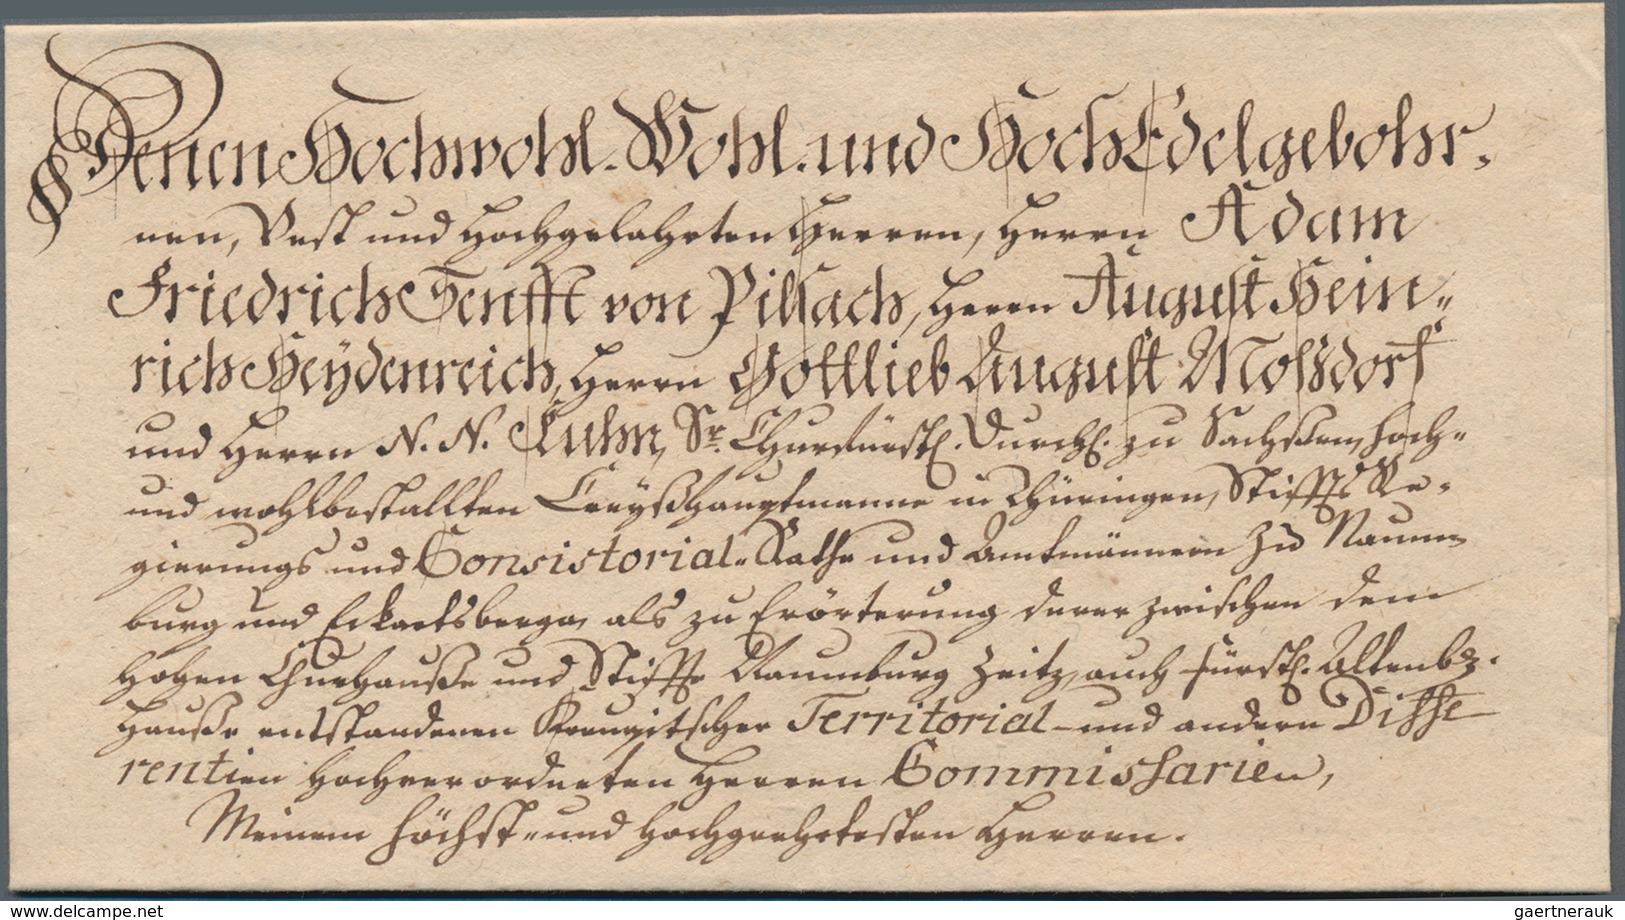 Denen Hochwohl- Wohl- und HochEdelgebohr-
nen, Vest und Hochgelahrten Herren, Herrn Adam
Friedrich Senfft von Pilsach, Herrn August Hein-
rich Heÿdenreich, Herrn Gottlieb August Mossdorf
und Herrn N. N. Luhn, Sr. Churfürstl. Durchl. zu Sachßen, hoch-
und wohlbestallten Creyßhauptmanne in Thüringen, Stiffts Re-
gierungs und Consistorial-Rathe und Amtmännern zu Naum-
burg und Eckartsberga, als zu Erörterung derer zwischen dem
Hohen Churhauße und Stiffte Naumburg Zeitz, auch fürstl. Altenb.
Hauße entstandenen Territorial- und andern Diffe
rentien Hochverordneten Herren Commissarien,
Meinem höchst- und hochgeehrtesten Herren.
www.delcampe.net
gaertnerauk